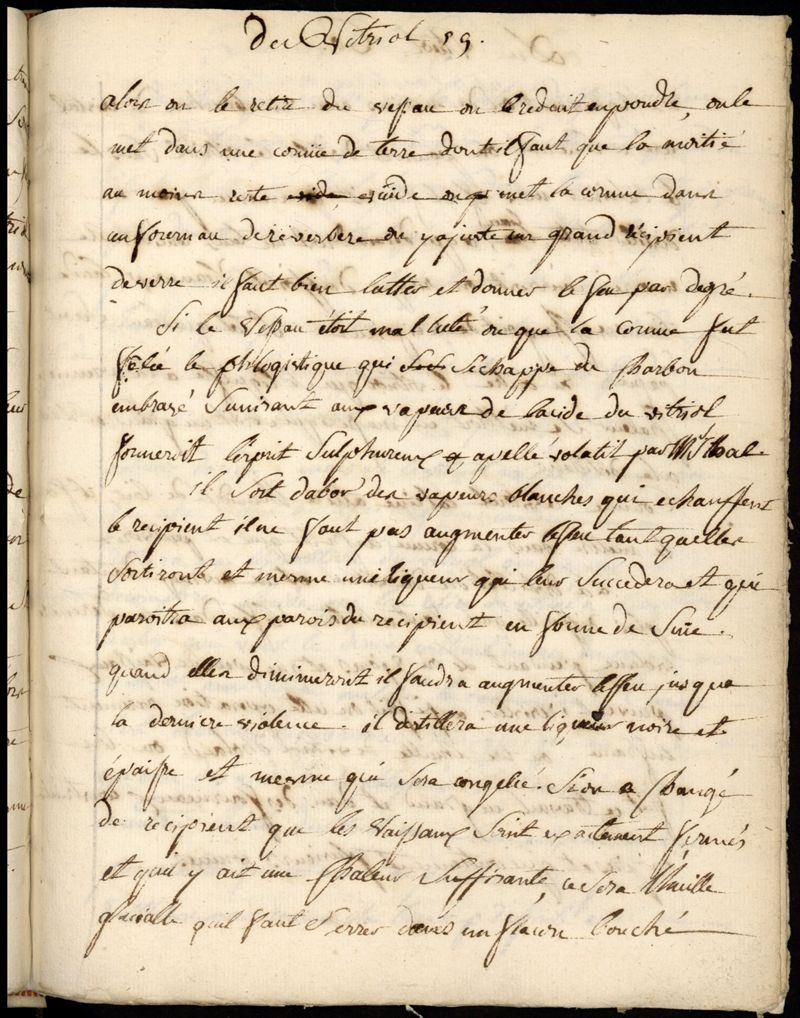 Du Vitriol 59.
alors on le retire du vessau on le reduit en poudre, on le
met dans une cornüe de terre dont il faut que la moitié
au moins reste vuide on met la cornue dans
un fourneau de reverbere on y ajuste un grand recipient
de verre il faut bien lutter et donner le feu par degré.
Si le vessau étoit mal luté ou que la cornue fut
felée le phlogistique qui sechappe du charbon
embrasé sunissant aux vapeurs de lacide du vitriol
formeroit lesprit sulphureux apellé volatil par Mr Sthal.
il sort dabor des vapeurs blanches qui echauffent
le recipient il ne faut pas augmenter le feu tant quelles
sortiront et mesme une liqueur qui leur succedera et qui
paroitra aux parois du recipient en forme de
quand elles diminueront il faudra augmenter le feu jusqua
la derniere violence. il distillera une liqueur noire et
épaisse et mesme qui sera congelée. Si on a changé
de recipient que les vaissaux soint exactement fermés
et quil y ait une chaleur suffisante, ce sera lhuille
glacialle quil faut serrer dans un flacon bouché